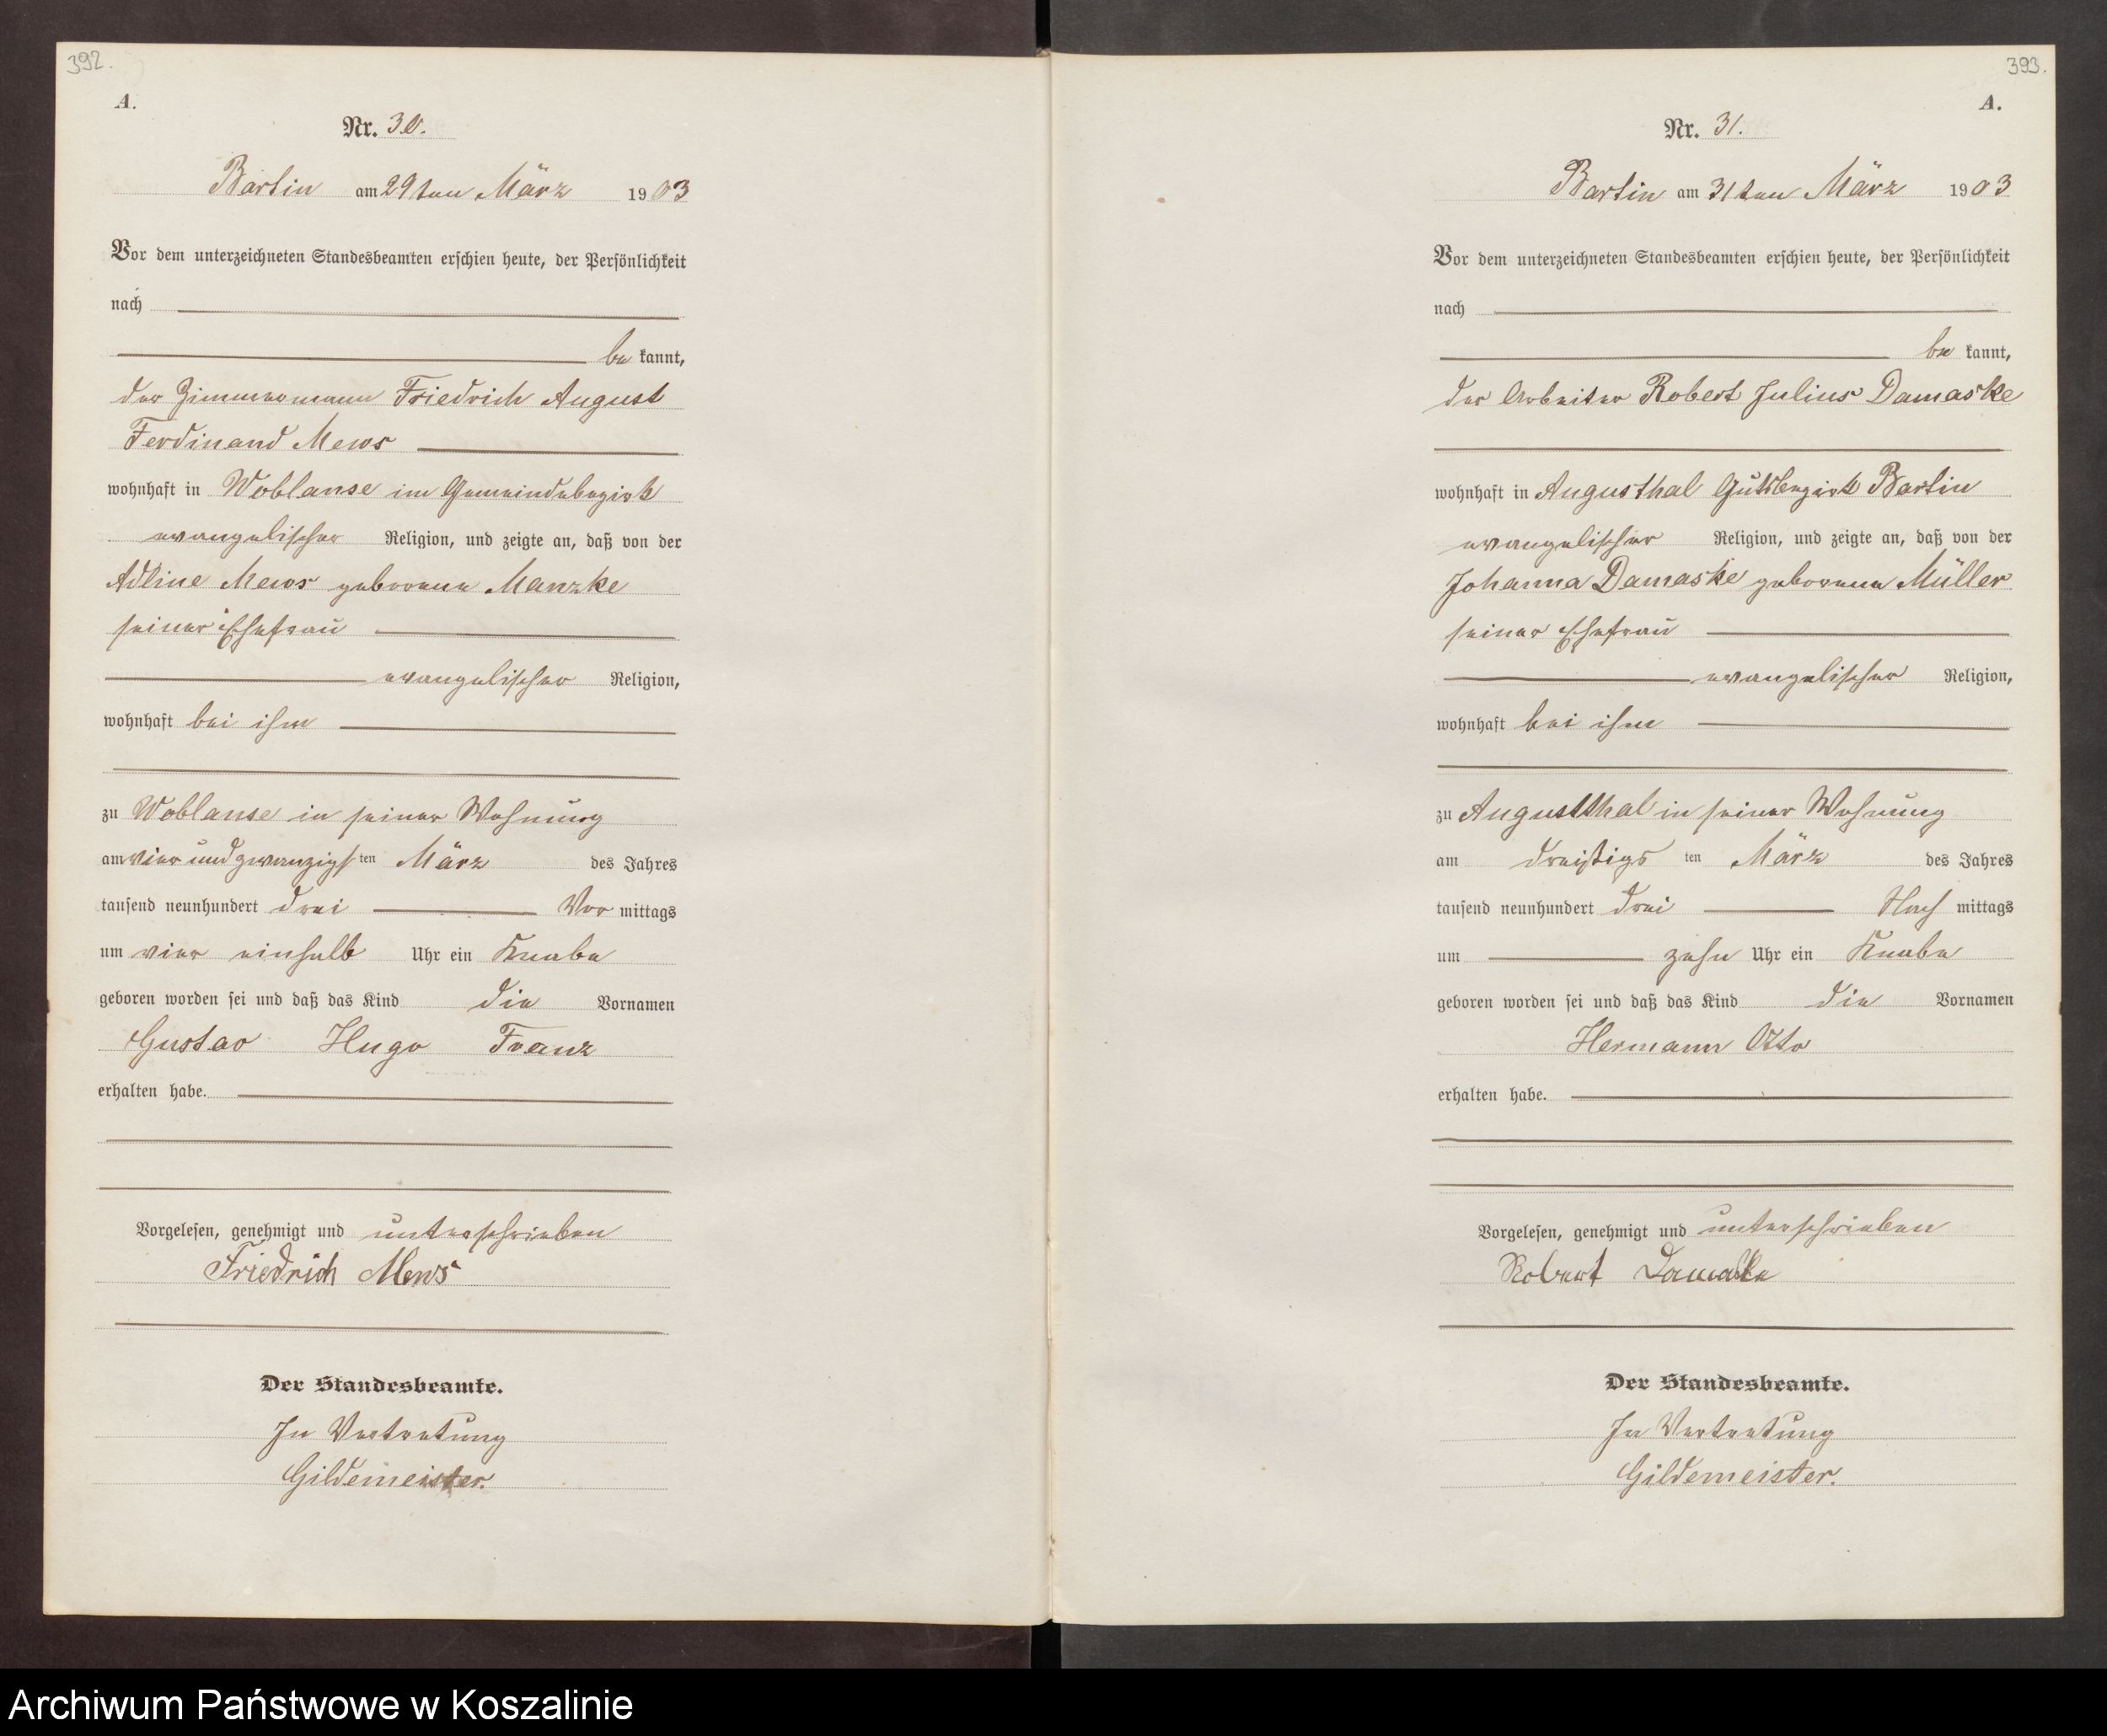 392.
A.
Nr. 30.
Bartin am 29ten März 1903
Vor dem unterzeichneten Standesbeamten erschien heute, der Persönlichkeit
nach
be kannt,
der Zimmermann Friedrich August
Ferdinand Mews
wohnhaft in Woblanse im Gemeindebezirk
evangelischer Religion, und zeigte an, daß von der
Adline Mews geborene Manzke
seiner Ehefrau
evangelischer Religion,
wohnhaft bei ihm
zu Woblanse in seiner Wohnung
am vier und zwanzigsten März des Jahres
tausend neunhundert drei Vor mittags
um vier einhalb Uhr ein Knabe
geboren worden sei und daß das Kind die Vornamen
Gustav Hugo Franz
erhalten habe.
Vorgelesen, genehmigt und unterschrieben
Friedrich Mews
Der Standesbeamte.
In Vertretung
Gildemeister.
393.
A.
Nr. 31.
Bartin am 31ten März 1903
Vor dem unterzeichneten Standesbeamten erschien heute, der Persönlichkeit
nach
be kannt,
der Arbeiter Robert Julius Damaske
wohnhaft in Augusthal Gutsbezirk Bartin
evangelischer Religion, und zeigte an, daß von der
Johanna Damaske geborene Müller
seiner Ehefrau
evangelischer Religion,
wohnhaft bei ihm
zu Augustthal in seiner Wohnung
am dreißigsten März des Jahres
tausend neunhundert drei Nach mittags
um zehn Uhr ein Knabe
geboren worden sei und daß das Kind die Vornamen
Hermann Otto
erhalten habe.
Vorgelesen, genehmigt und unterschrieben
Robert Damaske
Der Standesbeamte.
In Vertretung
Gildemeister.
Archiwum Państwowe w Koszalinie